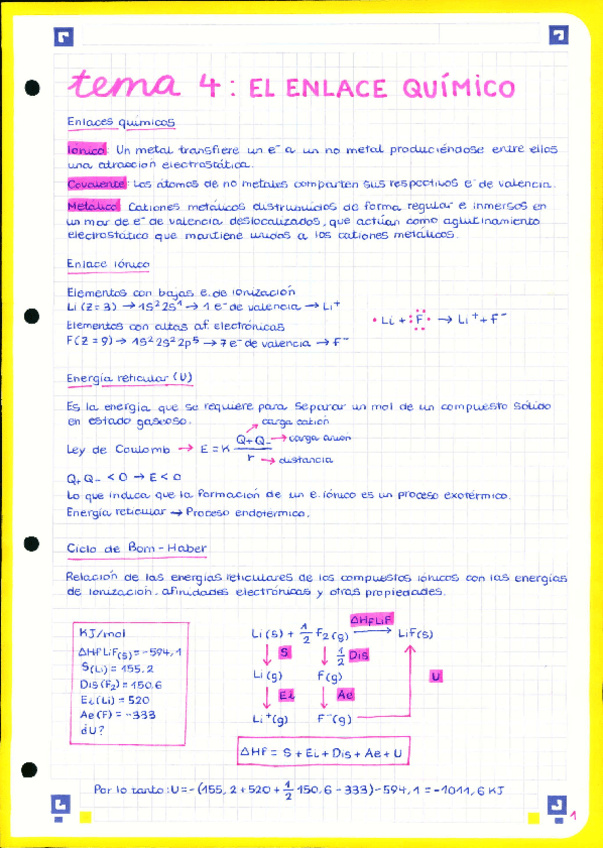 tema 4: EL ENLACE QUÍMICO
Enlaces químicos
Iónico: Un metal transfiere un e⁻ a un no metal produciéndose entre ellos
una atracción electrostática.
Covalente: Los átomos de no metales comparten sus respectivos e⁻ de valencia.
Metálico: Cationes metálicos distribuidos de forma regular e inmersos en
un mar de e⁻ de valencia deslocalizados, que actúan como aglutinamiento
electrostático que mantiene unidos a los cationes metálicos.
Enlace iónico
Elementos con bajas e. de ionización
Li (Z=3) → 1S² 2S¹ → 1 e⁻ de valencia → Li⁺
Li + F → Li⁺ + F⁻
Elementos con altas af. electrónicas
F(Z=9) → 1S² 2S² 2p⁵ → 7 e⁻ de valencia → F⁻
Energía reticular (U)
Es la energía que se requiere para separar un mol de un compuesto sólido
en estado gaseoso.
carga catión
Ley de Coulomb → E = K Q₊Q₋ / r
carga anión
distancia
Q₊Q₋ < 0 → E < 0
Lo que indica que la formación de un e. iónico es un proceso exotérmico.
Energía reticular → Proceso endotérmico.
Ciclo de Born-Haber
Relación de las energías reticulares de los compuestos iónicos con las energías
de ionización, afinidades electrónicas y otras propiedades.
KJ/mol
ΔHf LiF(s) = -594,1
S(Li) = 155,2
Dis(F₂) = 150,6
Ei(Li) = 520
Ae(F) = -333
¿U?
ΔHf LiF
Li(s) + 1/2 F₂(g) → LiF(s)
S 1/2 Dis
Li(g) F(g)
U
Ei Ae
Li⁺(g) F⁻(g)
ΔHf = S + Ei + Dis + Ae + U
Por lo tanto: U = -(155,2 + 520 + 1/2 150,6 - 333) - 594,1 = -1011,6 KJ
1